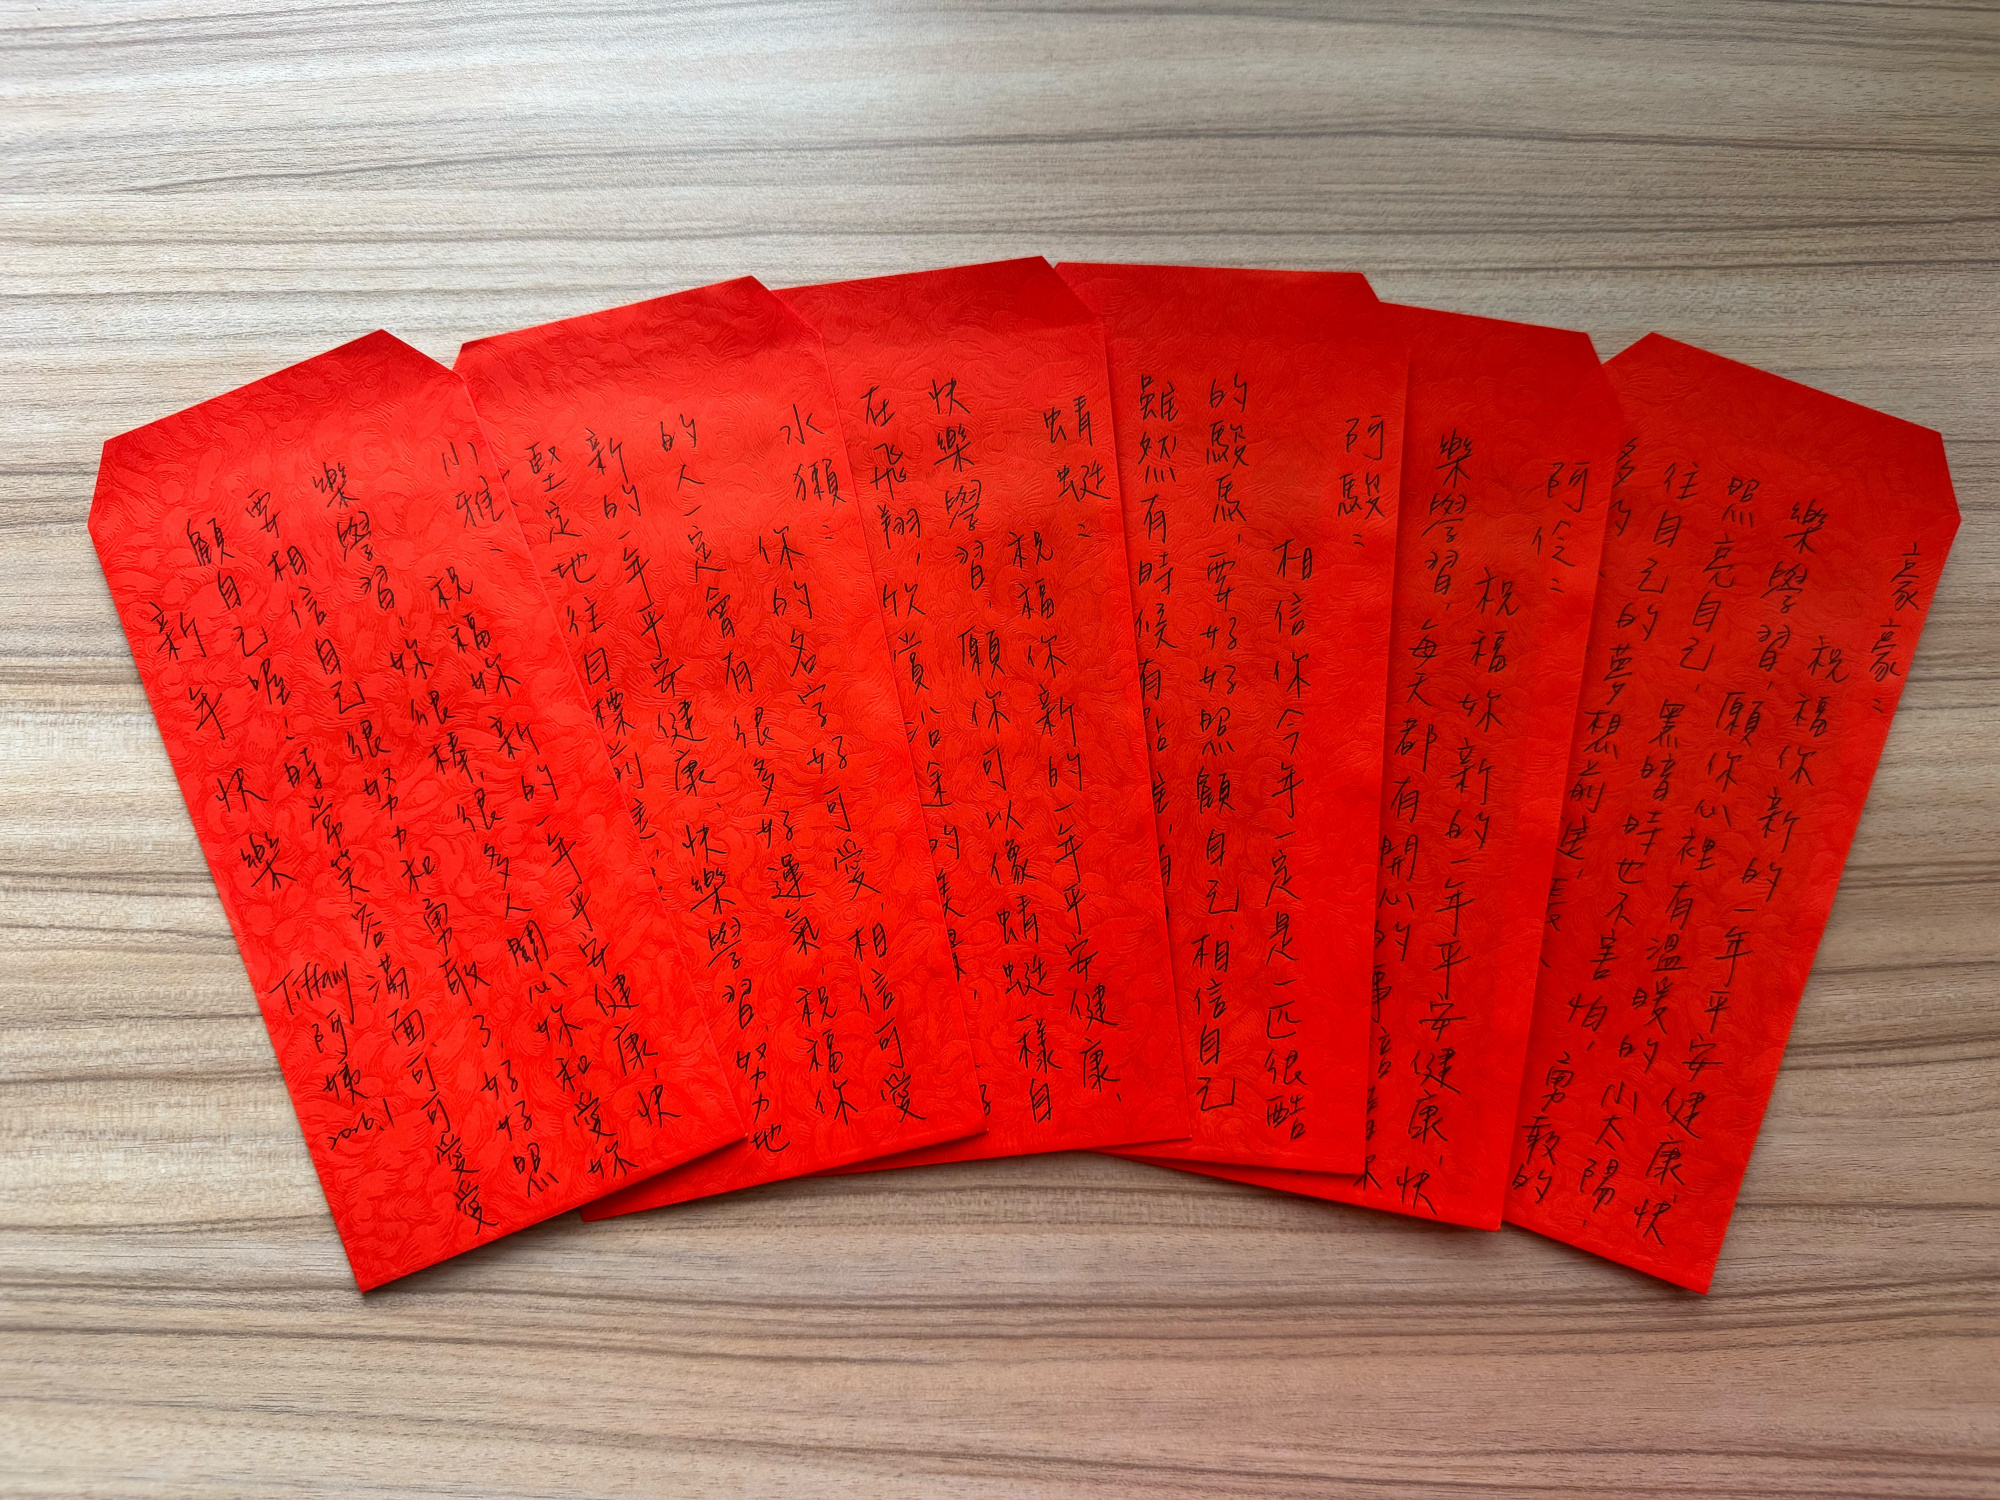 小雅：
祝福妳新的一年平安健康、快
樂學習，妳很棒，很多人關心妳和愛妳
要相信自己很努力和勇敢了，好好照
顧自己喔！時常笑容滿面、可可愛愛
新年快樂
Tiffany阿姨
2026.1
水獺：
你的名字好可愛，相信可愛
的人一定會有很多好運氣，祝福你
新的一年平安健康、快樂學習，努力地
堅定地往自標前進，
蜻蜓：
祝福你新的一年平安健康、
快樂學習，願你可以像蜻蜓一樣自
在飛翔，欣賞沿途的美景，
阿駿：
相信你今年一定是一匹很酷
的駿馬，要好好照顧自己，相信自己
雖然有時候有點
阿伶：
祝福妳新的一年平安健康、快
樂學習，每天都有開心的事
豪豪：
祝福你新的一年平安健康、快
樂學習，願你心裡有溫暖的小太陽，
照亮自己，黑暗時也不害怕，勇敢的
往自己的夢想前進，
多多的